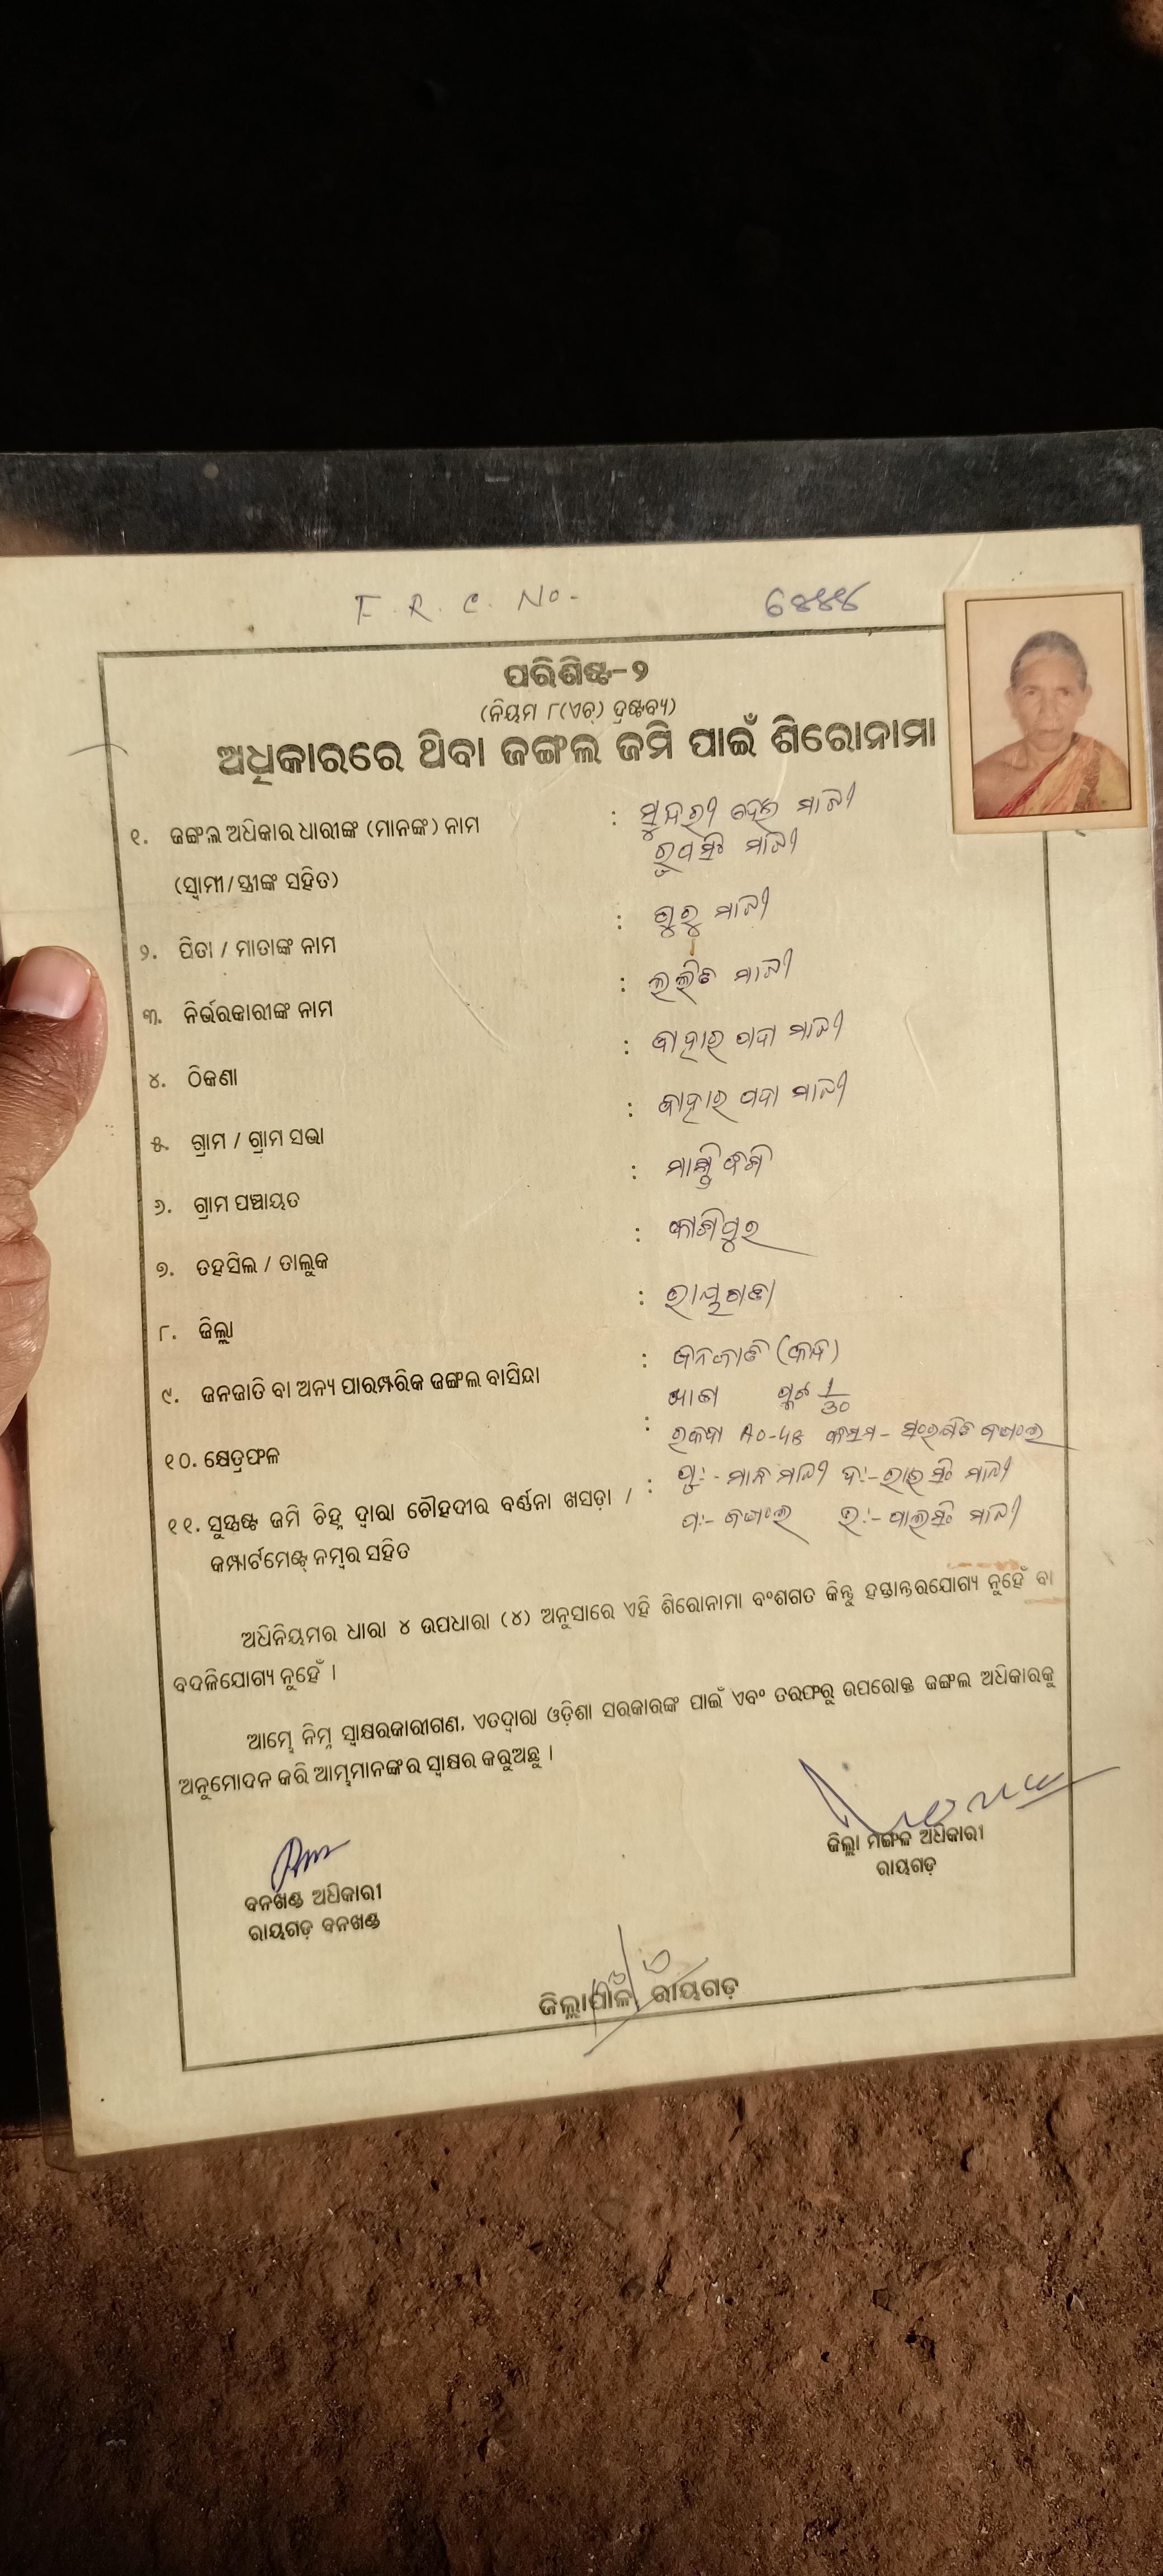 F. R. C. No-
ପରିଶିଷ୍ଟ-୨
(ନିୟମ ୮(ଏଚ୍) ଦ୍ରଷ୍ଟବ୍ୟ)
ଅଧିକାରରେ ଥିବା ଜଙ୍ଗଲ ଜମି ପାଇଁ ଶିରୋନାମା
୧. ଜଙ୍ଗଲ ଅଧିକାର ଧାରୀଙ୍କ (ମାନଙ୍କ) ନାମ : ସୁନ୍ଦରୀ ଦେଈ ମାଝୀ
(ସ୍ୱାମୀ/ସ୍ତ୍ରୀଙ୍କ ସହିତ) ରୂପସିଂ ମାଝୀ
୨. ପିତା / ମାତାଙ୍କ ନାମ : ଗୁରୁ ମାଝୀ
୩. ନିର୍ଭରକାରୀଙ୍କ ନାମ : ଲଳିତ ମାଝୀ
୪. ଠିକଣା :
୫. ଗ୍ରାମ / ଗ୍ରାମ ସଭା :
୬. ଗ୍ରାମ ପଞ୍ଚାୟତ :
୭. ତହସିଲ / ତାଲୁକ : କାଶିପୁର
୮. ଜିଲ୍ଲା : ରାୟଗଡା
୯. ଜନଜାତି ବା ଅନ୍ୟ ପାରମ୍ପରିକ ଜଙ୍ଗଲ ବାସିନ୍ଦା : ଜନଜାତି (କନ୍ଧ)
ପ୍ଲଟ 1/30
୧୦. କ୍ଷେତ୍ରଫଳ : ରକବା
୧୧. ସୁସ୍ପଷ୍ଟ ଜମି ଚିହ୍ନ ଦ୍ୱାରା ଚୌହଦୀର ବର୍ଣ୍ଣନା ଖସଡ଼ା / : ପୂଃ- ମାଝୀ ଦଃ- ମାଝୀ
କମ୍ପାର୍ଟମେଣ୍ଟ୍ ନମ୍ବର ସହିତ ପଃ- ଉଃ- ମାଝୀ
ଅଧିନିୟମର ଧାରା ୪ ଉପଧାରା (୪) ଅନୁସାରେ ଏହି ଶିରୋନାମା ବଂଶଗତ କିନ୍ତୁ ହସ୍ତାନ୍ତରଯୋଗ୍ୟ ନୁହେଁ ବା
ବଦଳିଯୋଗ୍ୟ ନୁହେଁ ।
ଆମ୍ଭେ ନିମ୍ନ ସ୍ୱାକ୍ଷରକାରୀଗଣ, ଏତଦ୍ୱାରା ଓଡ଼ିଶା ସରକାରଙ୍କ ପାଇଁ ଏବଂ ତରଫରୁ ଉପରୋକ୍ତ ଜଙ୍ଗଲ ଅଧିକାରକୁ
ଅନୁମୋଦନ କରି ଆମ୍ଭମାନଙ୍କର ସ୍ୱାକ୍ଷର କରୁଅଛୁ ।
ଜିଲ୍ଲା ମଙ୍ଗଳ ଅଧିକାରୀ
ରାୟଗଡ଼
ବନଖଣ୍ଡ ଅଧିକାରୀ
ରାୟଗଡ଼ ବନଖଣ୍ଡ
ଜିଲ୍ଲାପାଳ, ରାୟଗଡ଼